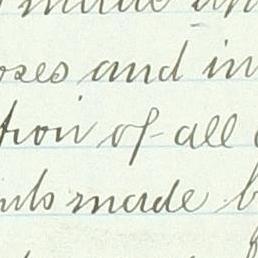 made an
oses and in
tion of all
nts made b